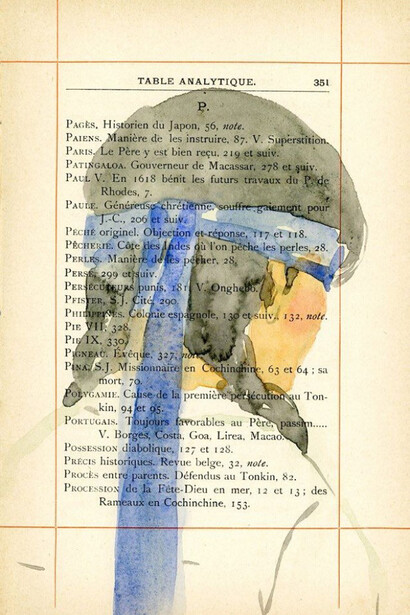 TABLE ANALYTIQUE. 351
P.
PAGÈS, Historien du Japon, 56, note.
PAIENS. Manière de les instruire, 87. V. Superstition.
PARIS. Le Père y est bien reçu, 219 et suiv.
PATINGALOA. Gouverneur de Macassar, 278 et suiv.
PAUL V. En 1618 bénit les futurs travaux du P. de
Rhodes, 7.
PAULE. Généreuse chrétienne, souffre gaiement pour
J.-C., 206 et suiv.
PÉCHÉ originel. Objection et réponse, 117 et 118.
PÊCHERIE. Côte des Indes où l'on pêche les perles, 28.
PERLES. Manière de les pêcher, 28.
PERSE, 299 et suiv.
PERSÉCUTEURS punis, 181. V. Onghebo.
PFISTER, S.J. Cité, 290.
PHILIPPINES. Colonie espagnole, 130 et suiv., 132, note.
PIE VII, 328.
PIE IX, 330.
PIGNEAU. Évêque, 327, note.
PINA, S.J. Missionnaire en Cochinchine, 63 et 64; sa
mort, 70.
POLYGAMIE. Cause de la première persécution au Ton-
kin, 94 et 95.
PORTUGAIS. Toujours favorables au Père, passim.....
V. Borgès, Costa, Goa, Lirea, Macao.
POSSESSION diabolique, 127 et 128.
PRÉCIS historiques. Revue belge, 32, note.
PROCÈS entre parents. Défendus au Tonkin, 82.
PROCESSION de la Fête-Dieu en mer, 12 et 13; des
Rameaux en Cochinchine, 153.